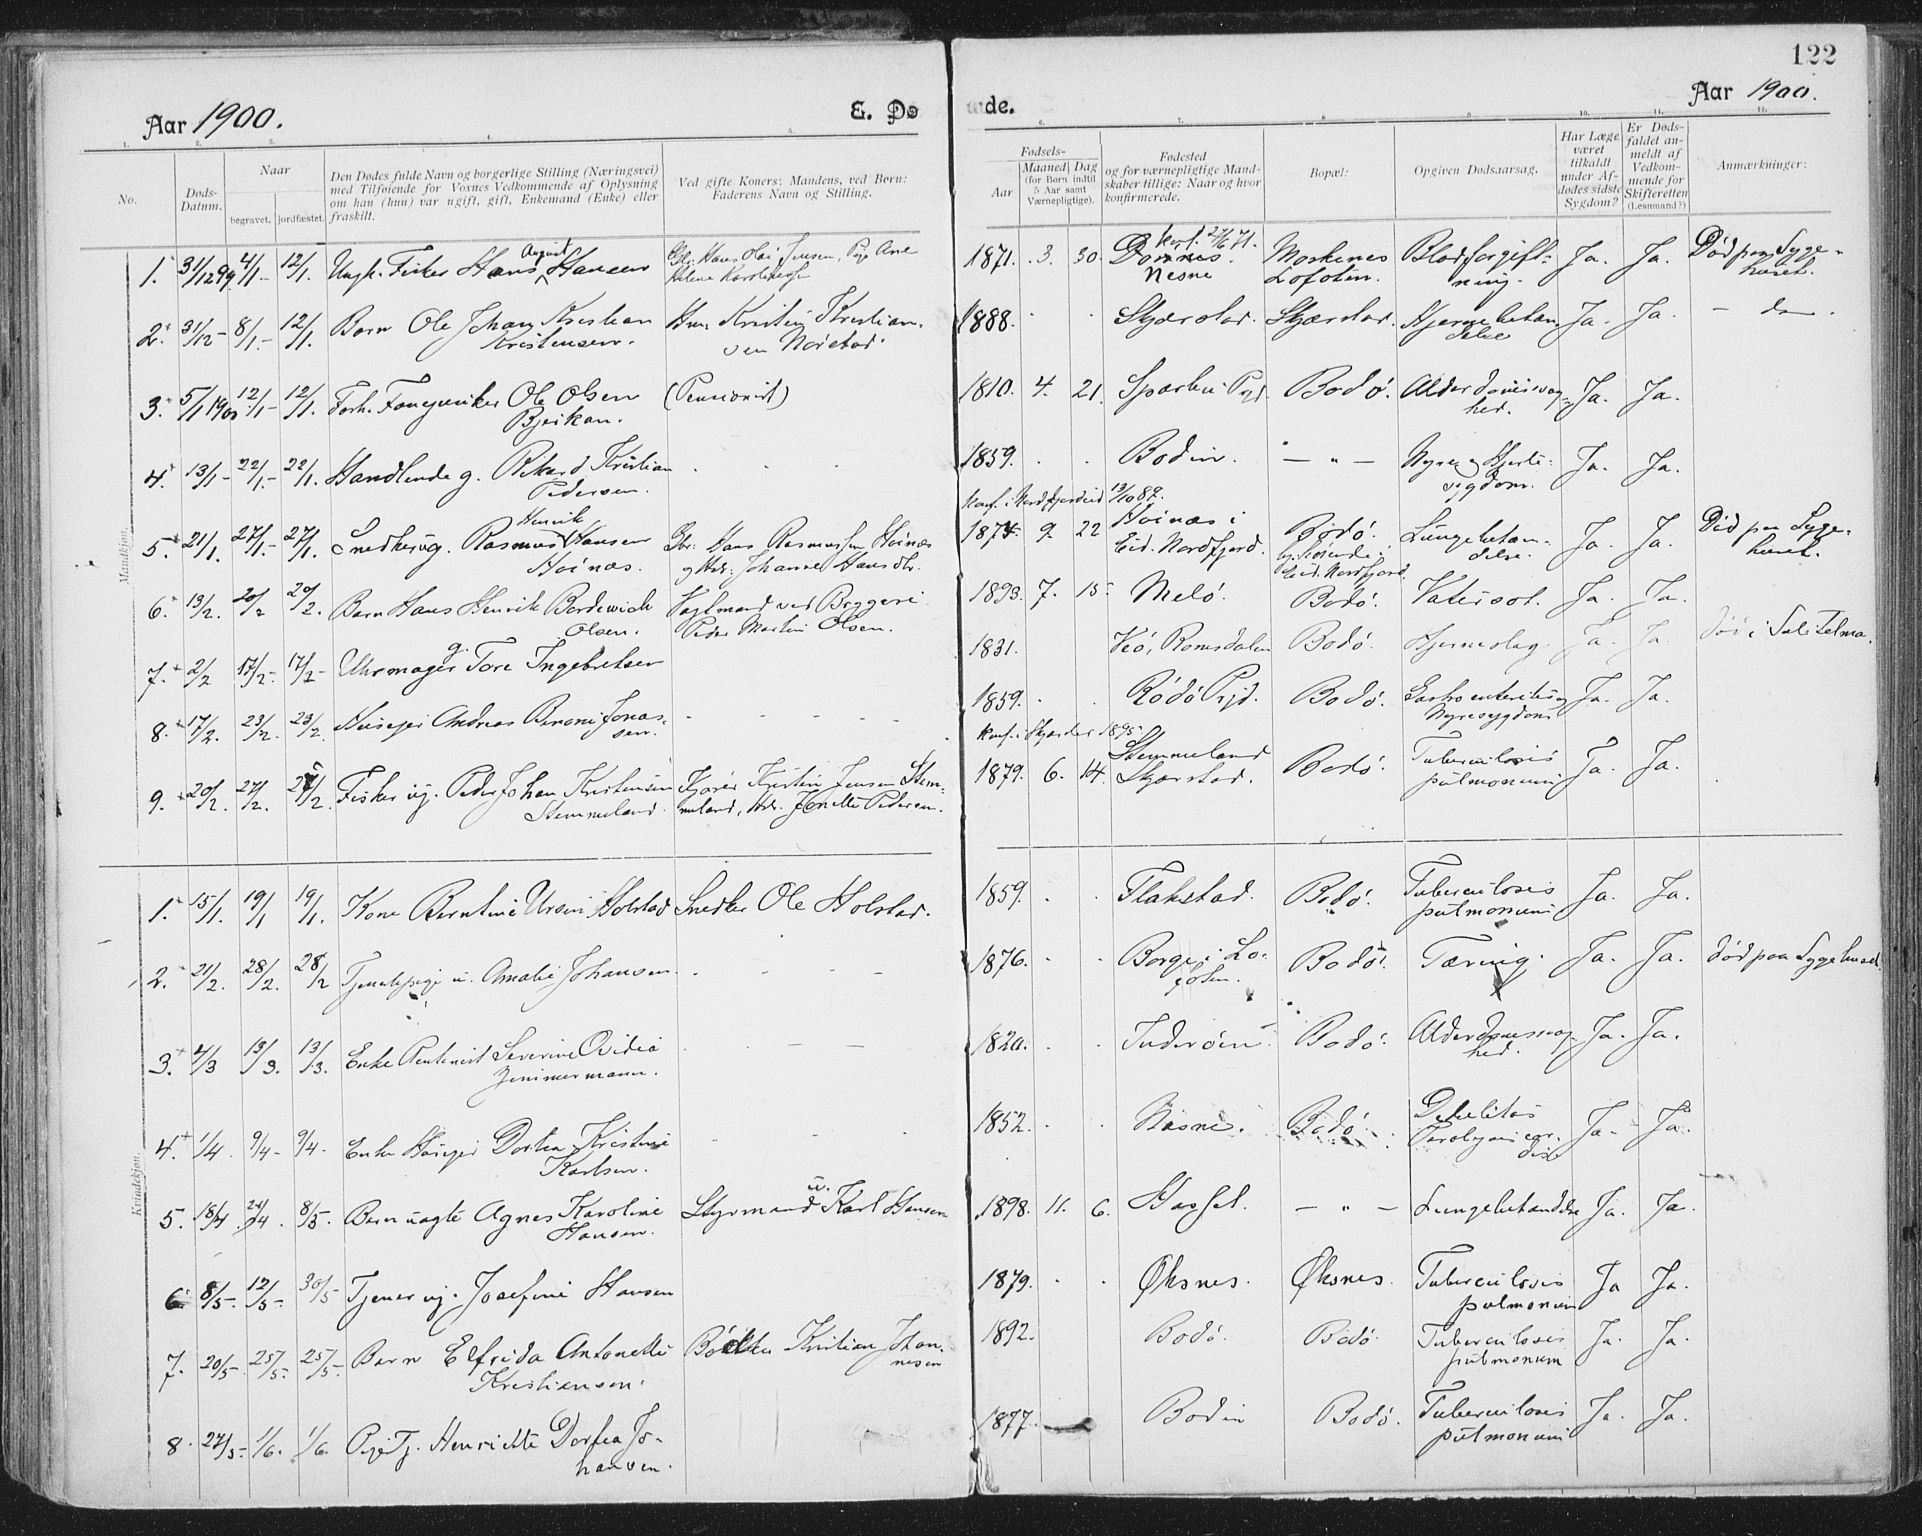 122
Aar 1900.
E. Dø
de.
Aar 1900.
1. 2. 3. 4. 5. 6. 7. 8. 9. 10. 11. 12.
No.
Døds-
Datum.
Naar
begravet. jordfæstet.
Den Dødes fulde Navn og borgerlige Stilling (Næringsvei)
med Tilføiende for Voxnes Vedkommende af Oplysning
om han (hun) var ugift, gift, Enkemand (Enke) eller
fraskilt.
Ved gifte Koners: Mandens, ved Børn:
Faderens Navn og Stilling.
Fødsels-
Aar
Maaned Dag
(for Børn indtil
5 Aar samt
Værnepligtige).
Fødested
og for værnepligtige Mand-
skaber tillige: Naar og hvor
konfirmerede.
Bopæl:
Opgiven Dødsaarsag.
Har Læge
været
tilkaldt
under Af-
dødes sidste
Sygdom?
Er Døds-
faldet an-
meldt af
Vedkom-
mende for
Skifteretten
(Lensmand?)
Anmærkninger:
Mandkjøn.
1. 31/12 99 4/1 12/1. Ungk. Fisker Hans August Hansen
1871. 3. 30. Dønnes. Nesne
Moskenes Lofoten. Blodforgift-
ning. Ja. Ja. Død paa Syge-
huset.
2. 31/12 8/1 12/1. Barn Ole Johan Kristian
Kristensen.
1888. Skjærstad. Skjærstad. Hjernebetæn-
delse Ja. Ja. — do —.
3. 5/1 1900 12/1 12/1. Forh. Ole Olsen
Bjerkan. (Pensionist)
1810. 4. 21. Sparbu Pgd. Bodø. Alderdomssvag-
hed. Ja. Ja.
4. 13/1 22/1 22/1. Handlende g. Rikard Kristian
Pedersen.
1859. Bodin. — " — Nyre og Hjerte-
sygdom. Ja. Ja.
5. 21/1. 27/1 27/1. Snedker ug. Rasmus Henrik Hansen
Hoinæs. Hans Rasmussen Hoinæs
Johanne Hansdtr.
1874 9 22 Hoinæs i
Eid. Nordfjord. Bodø. Lungebetæn-
delse. Ja. Ja. Død paa Syge-
huset.
6. 13/2. 20/2 20/2. Barn Hans Henrik Bordewick
Olsen. Vagtmand ved Bryggeri
Peder Martin Olsen.
1893. 7. 15 Melø. Bodø. Vatersot. Ja. Ja.
7. 2/2 17/2 17/2 Uhrmager g. Tore Ingebretsen
1831. Veø, Romsdalen Bodø. Hjerneslag. Ja. Ja.
8. 17/2. 23/2. 23/2. Huseier Andreas Benoni Jonas-
sen.
1859. Rødø Pgd. Bodø. Gastroenteritis og
Nyresygdom Ja. Ja.
9. 20/2. 27/2. 27/2. Fisker ug. Peder Johan Kristensen
Stemmeland. Kristen Jensen Stem-
meland, Jonette Pedersen.
1879. 6. 14. Stemmeland
Skjærstad. Bodø. Tuberculosis
pulmonum Ja. Ja.
Kvindekjøn.
1. 15/1. 19/1 19/1. Kone Berntine Ursin Holstad Snedker Ole Holstad.
1859. Flakstad. Bodø. Tuberculosis
pulmonum Ja. Ja.
2. 21/2. 28/2. 28/2 Tjenestepige u. Amalie Johansen.
1876. Borge i Lo-
foten. Bodø. Tæring. Ja. Ja. Død paa Sygehuset.
3. 4/3 13/3. 13/3. Enke Severine Ovidia
Zimmermann.
1820. Inderøen Bodø. Alderdomssvag-
hed. Ja. Ja.
4. 1/4 9/4 9/4. Enke Dortea Kristine
Karlsen.
1852. Næsne. Bodø. Debilitas
Ja. Ja.
5. 18/4 24/4. 8/5. Barn uægte Agnes Karoline
Hansen. Styrmand u. Karl Hansen
1898. 11. 6. Hassel. — " — Lungebetændelse Ja. Ja.
6. 8/5. 12/5. 30/5 Tjener ug. Josefine Hansen
1879. Øksnes. Øksnes. Tuberculosis
pulmonum Ja Ja.
7. 20/5. 25/5. 25/5. Barn Elfrida Antonette
Kristiansen. Bødker Kristian Johan-
nesen
1892. Bodø. Bodø. Tuberculosis
pulmonum Ja. Ja.
8. 27/5. 1/6. 1/6 Pige Tj. Henriette Dorfea Jo-
hansen.
1877. Bodin Bodø. Tuberculosis
pulmonum Ja. Ja.